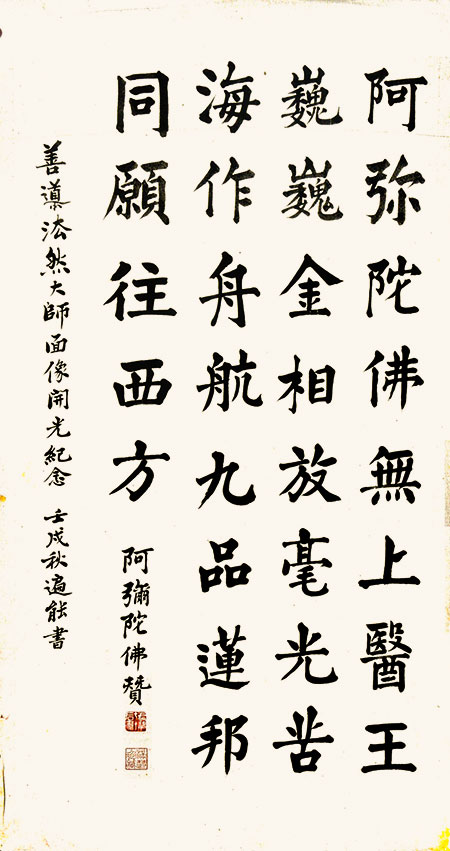 阿弥陀佛無上醫王
巍巍金相放毫光苦
海作舟航九品蓮邦
同願往西方
阿彌陀佛贊
善導法然大師面像開光紀念 壬戌秋遍能書